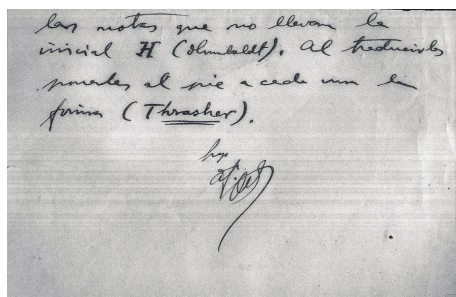 las notas que no llevan la
inicial H (Humboldt). Al traducirlas
ponerles al pie a cada una la
firma (Thrasher).